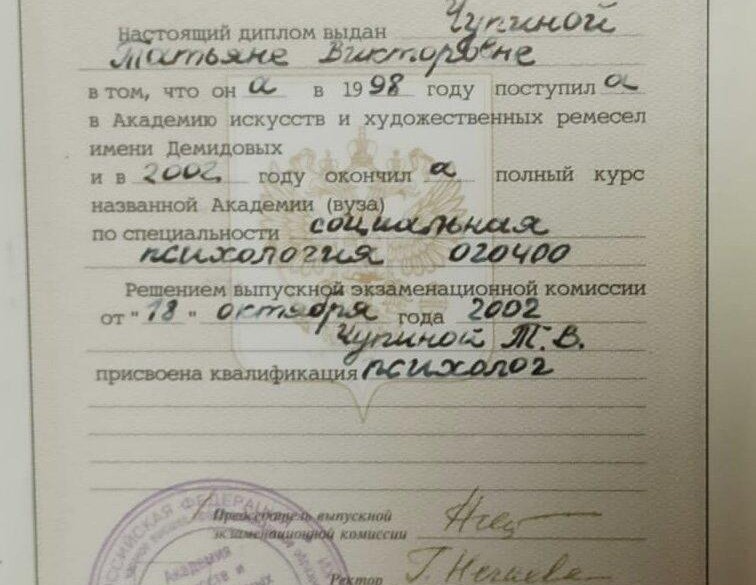 Настоящий диплом выдан Чупиной
Татьяне Викторовне
в том, что он а в 1998 году поступил а
в Академию искусств и художественных ремесел
имени Демидовых
и в 2002 году окончил а полный курс
названной Академии (вуза)
по специальности социальная
психология 020400
Решением выпускной экзаменационной комиссии
от "18" октября года 2002
Чупиной Т. В.
присвоена квалификация психолог
Председатель выпускной
экзаменационной комиссии
Ректор Г. Нечаева
РОССИЙСКАЯ ФЕДЕРАЦИЯ
Академия